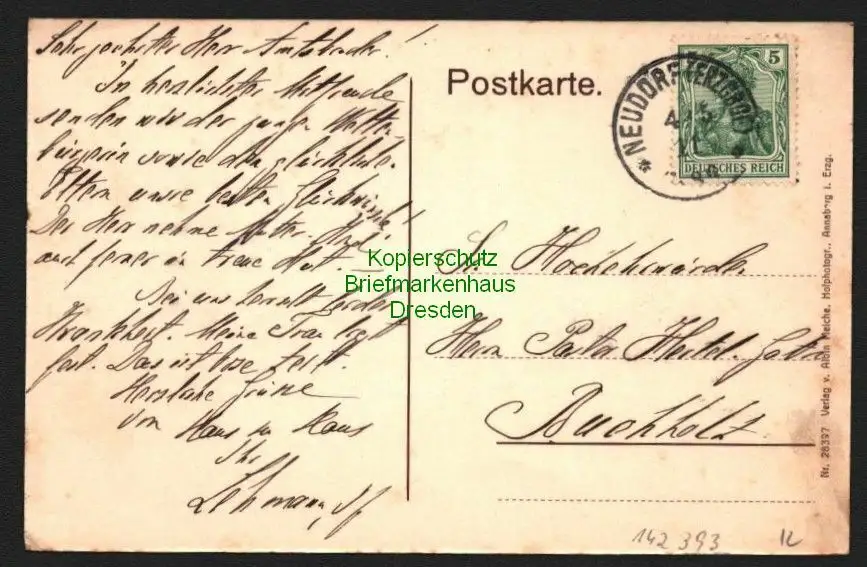 Sehr geehrter Herr Amtsbruder!
In herzlichster Mitfreude
senden wir der jungen Welten-
bürgerin sowie den glücklichen
Eltern unsre besten Glückwünsche!
Der Herr nehme Mutter Kind
auch ferner in treue Hut.
Bei uns
Krankheit. Meine Frau liegt
fest. Das ist böse Zeit.
Herzliche Grüße
von Haus zu Haus
Ihr
Lehmann, Pf
Postkarte.
* NEUDORF (ERZGEB.) *
5
DEUTSCHES REICH
Kopierschutz
Briefmarkenhaus
Dresden
Sr. Hochehrwürden
Herrn Pastor Hertel
Buchholz.
Nr. 28397 Verlag v. Albin Meiche, Hofphotogr., Annaberg i. Erzg.
142 393